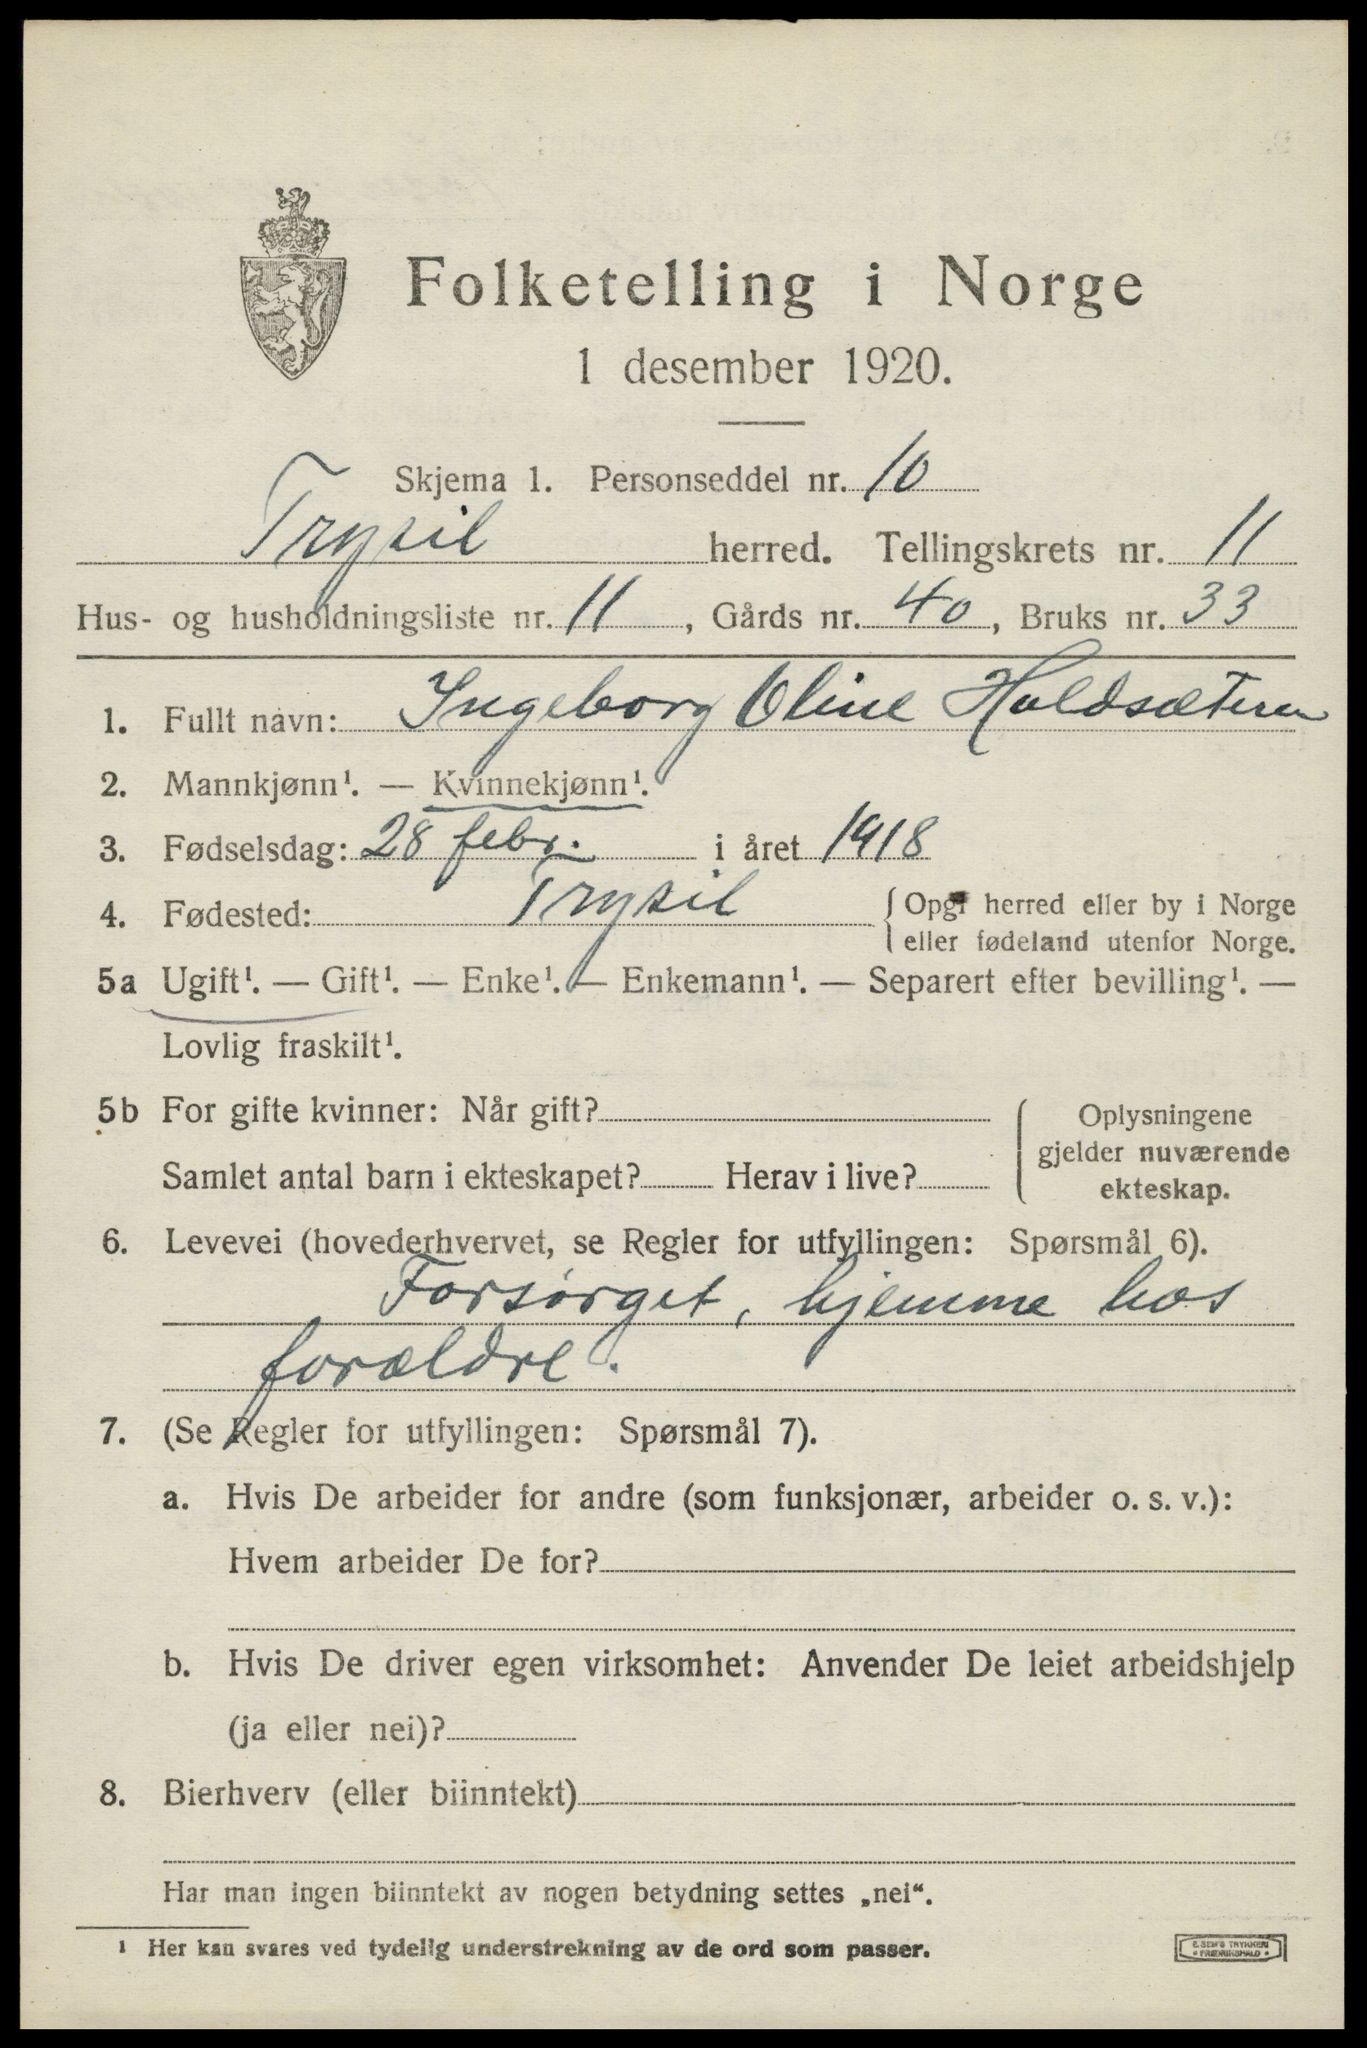 Folketelling i Norge
1 desember 1920.
Skjema 1. Personseddel nr. 10
Trysil herred. Tellingskrets nr. 11
Hus- og husholdningsliste nr. 11, Gårds nr. 40, Bruks nr. 33
1. Fullt navn: Ingeborg Oline Holdsæteren
2. Mannkjønn¹. — Kvinnekjønn¹.
3. Fødselsdag: 28 febr. i året 1918
4. Fødested: Trysil { Opgi herred eller by i Norge
eller fødeland utenfor Norge.
5a Ugift¹. — Gift¹. — Enke¹. — Enkemann¹. — Separert efter bevilling¹. —
Lovlig fraskilt¹.
5b For gifte kvinner: Når gift? Oplysningene
gjelder nuværende
Samlet antal barn i ekteskapet? Herav i live? ekteskap.
6. Levevei (hovederhvervet, se Regler for utfyllingen: Spørsmål 6).
Forsørget, hjemme hos
forældre.
7. (Se Regler for utfyllingen: Spørsmål 7).
a. Hvis De arbeider for andre (som funksjonær, arbeider o. s. v.):
Hvem arbeider De for?
b. Hvis De driver egen virksomhet: Anvender De leiet arbeidshjelp
(ja eller nei)?
8. Bierhverv (eller biinntekt)
Har man ingen biinntekt av nogen betydning settes „nei“.
¹ Her kan svares ved tydelig understrekning av de ord som passer.
E. SEM'S TRYKKERI
FREDRIKSHALD